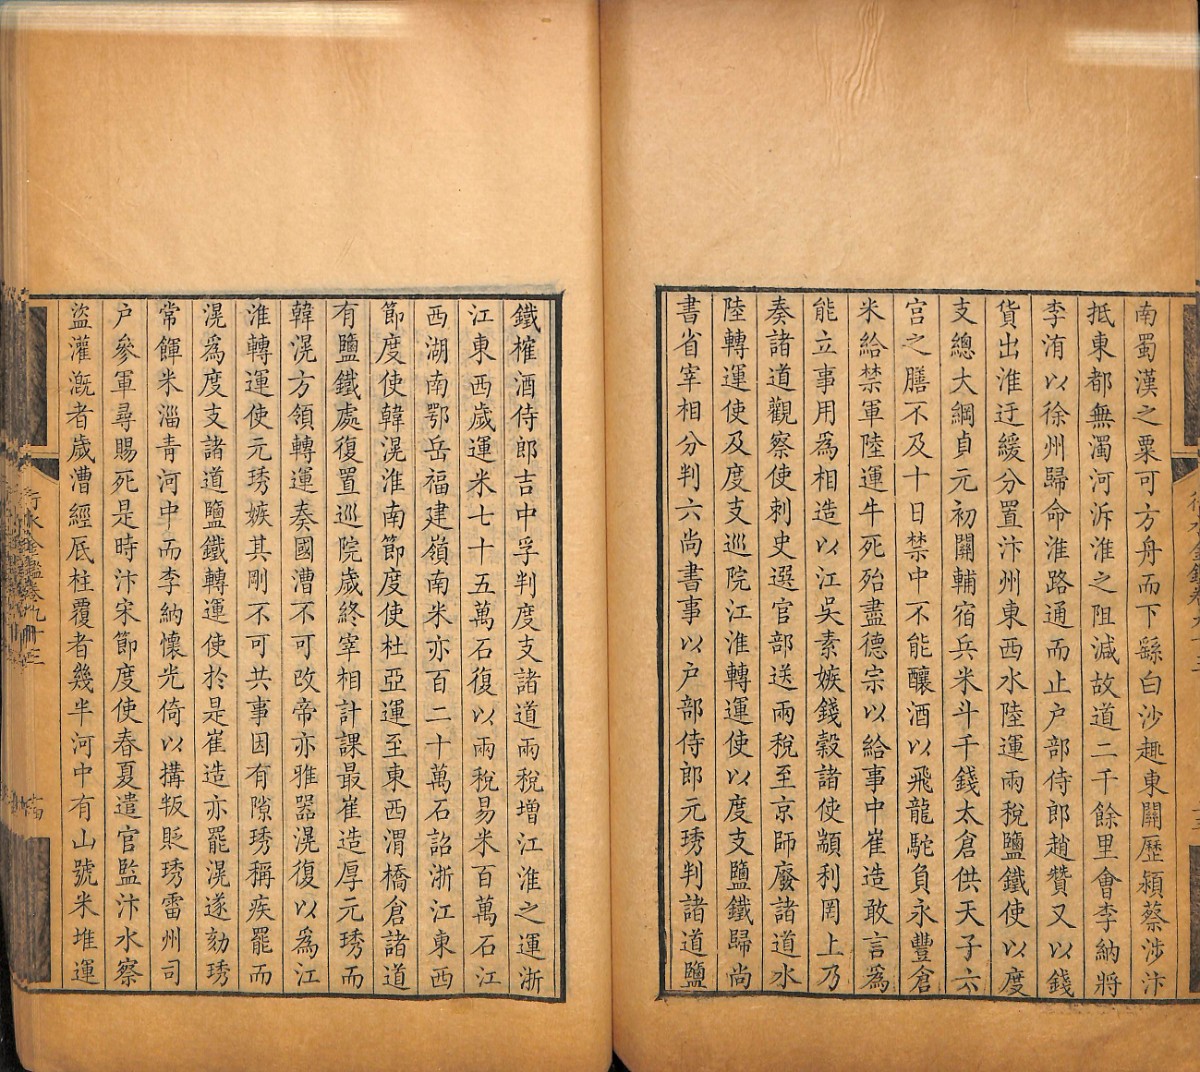 南蜀漢之粟可方舟而下繇白沙趣東關歷潁蔡涉汴
抵東都無濁河泝淮之阻減故道二千餘里會李納將
李洧以徐州歸命淮路通而止户部侍郎趙贊又以錢
貨出淮迂緩分置汴州東西水陸運兩稅鹽鐵使以度
支總大綱貞元初關輔宿兵米斗千錢太倉供天子六
宫之膳不及十日禁中不能釀酒以飛龍駝負永豐倉
米給禁軍陸運牛死殆盡德宗以給事中崔造敢言為
能立事用為相造以江吳素嫉錢穀諸使顓利罔上乃
奏諸道觀察使刺史選官部送兩稅至京師廢諸道水
陸轉運使及度支巡院江淮轉運使以度支鹽鐵歸尚
書省宰相分判六尚書事以户部侍郎元琇判諸道鹽
鐵榷酒侍郎吉中孚判度支諸道兩稅增江淮之運浙
江東西歲運米七十五萬石復以兩稅易米百萬石江
西湖南鄂岳福建嶺南米亦百二十萬石詔浙江東西
節度使韓滉淮南節度使杜亞運至東西渭橋倉諸道
有鹽鐵處復置巡院歲終宰相計課最崔造厚元琇而
韓滉方領轉運奏國漕不可改帝亦雅器滉復以為江
淮轉運使元琇嫉其剛不可共事因有隙琇稱疾罷而
滉為度支諸道鹽鐵轉運使於是崔造亦罷滉遂劾琇
常餫米淄青河中而李納懷光倚以搆叛貶琇雷州司
户參軍尋賜死是時汴宋節度使春夏遣官監汴水察
盜灌溉者歲漕經底柱覆者幾半河中有山號米堆運
行水金鑑卷九十三